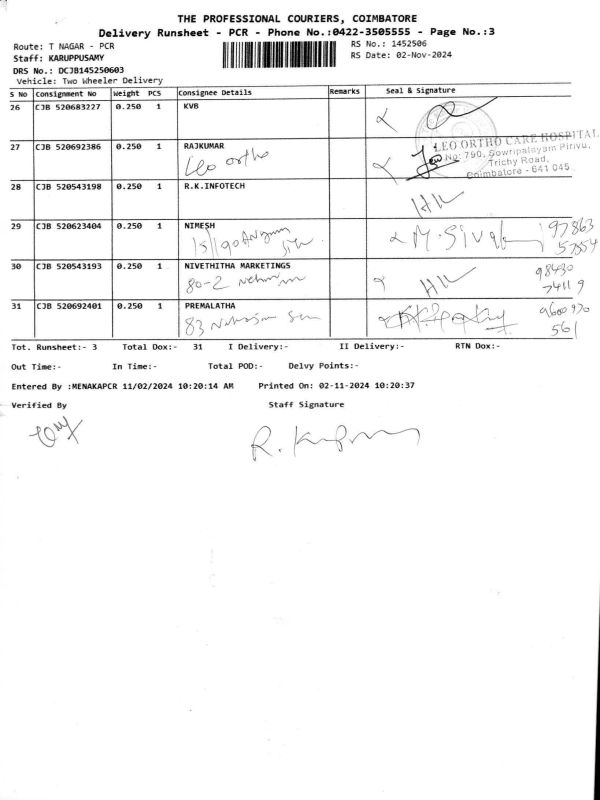 THE PROFESSIONAL COURIERS, COIMBATORE
Delivery Runsheet - PCR - Phone No.:0422-3505555 - Page No.:3
Route: T NAGAR - PCR RS No.: 1452506
Staff: KARUPPUSAMY RS Date: 02-Nov-2024
DRS No.: DCJB145250603
Vehicle: Two Wheeler Delivery
S No Consignment No Weight PCS Consignee Details Remarks Seal & Signature
26 CJB 520683227 0.250 1 KVB
27 CJB 520692386 0.250 1 RAJKUMAR
Leo ortho
LEO ORTHO CARE HOSPITAL
No: 790, Gowripalayam Pirivu,
Trichy Road,
Coimbatore - 641 045
28 CJB 520543198 0.250 1 R.K.INFOTECH
29 CJB 520623404 0.250 1 NIMESH
M. Siva
97863
57554
30 CJB 520543193 0.250 1 NIVETHITHA MARKETINGS
80-2
98430
74119
31 CJB 520692401 0.250 1 PREMALATHA
83
9600970
561
Tot. Runsheet:- 3 Total Dox:- 31 I Delivery:- II Delivery:- RTN Dox:-
Out Time:- In Time:- Total POD:- Delvy Points:-
Entered By :MENAKAPCR 11/02/2024 10:20:14 AM Printed On: 02-11-2024 10:20:37
Verified By Staff Signature